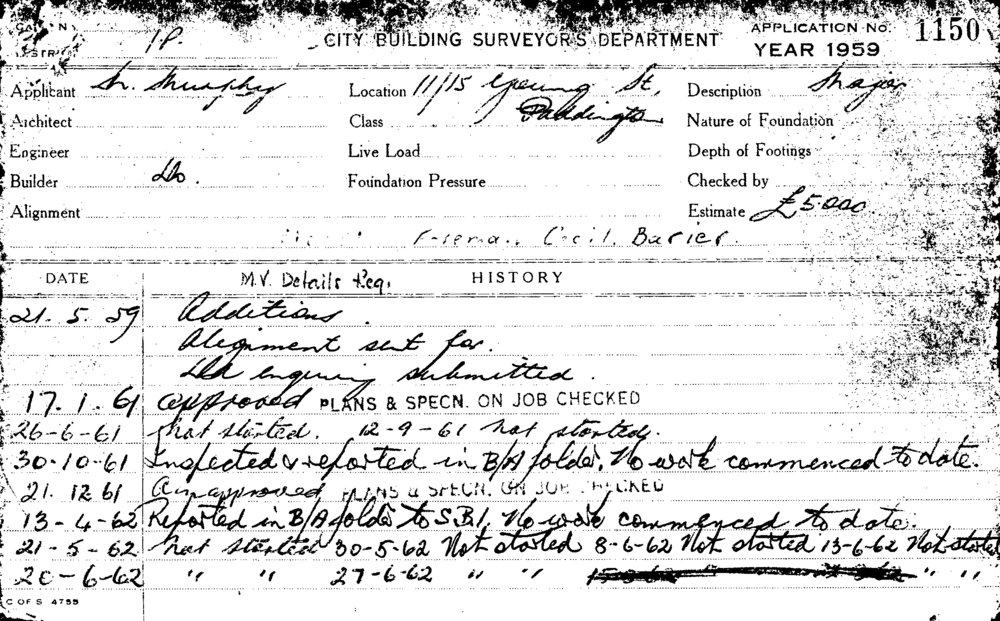 CITY BUILDING SURVEYOR'S DEPARTMENT
APPLICATION No. 1150
YEAR 1959
Applicant M. Murphy Location 11/15 Young St, Paddington Description
Architect Class Nature of Foundation
Engineer Live Load Depth of Footings
Builder Do. Foundation Pressure Checked by
Alignment Estimate £5000
Foreman Cecil
DATE M.V. Details Req. HISTORY
21. 5. 59 Additions.
Alignment sent for.
submitted.
17. 1. 61 approved PLANS & SPECN. ON JOB CHECKED
26-6-61 Not started. 12-9-61 Not started.
30-10-61 Inspected & reported in B/A folder, No work commenced to date.
21. 12 61 approved PLANS & SPECN. ON JOB CHECKED
13-4-62 Reported in B/A folder to S.B.I, No work commenced to date.
21-5-62 Not started 30-5-62 Not started 8-6-62 Not started 13-6-62 Not started
20-6-62 " " 27-6-62 " " " "
C OF S 4755